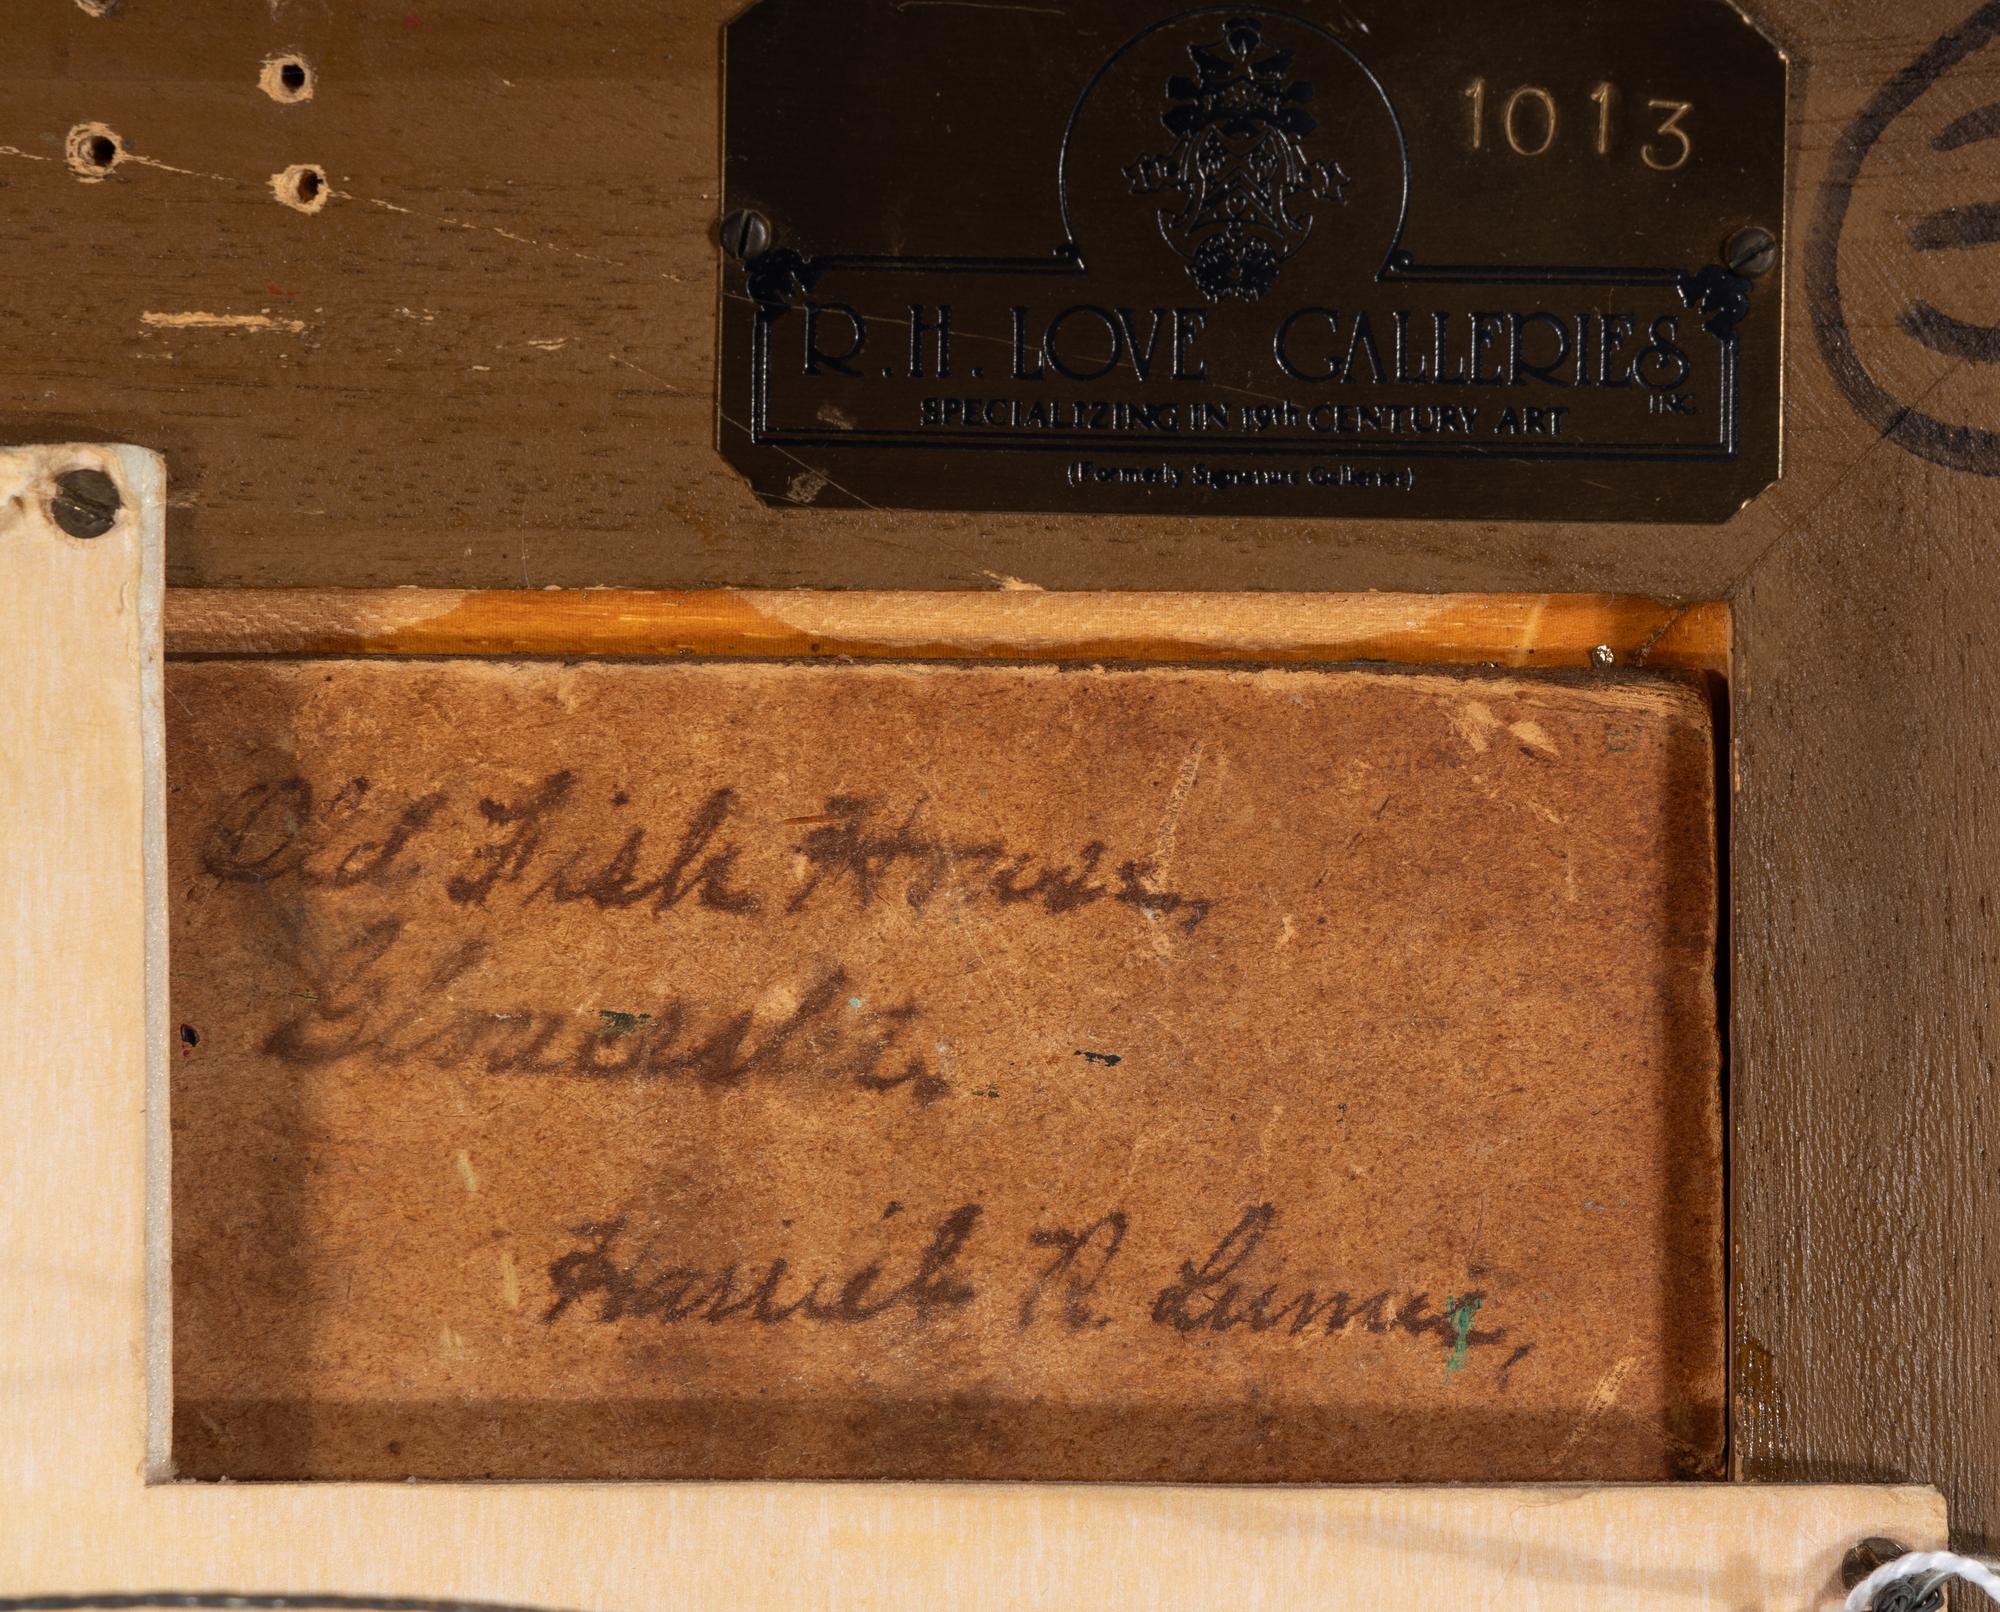 1013
R. H. LOVE GALLERIES
INC.
SPECIALIZING IN 19th CENTURY ART
(Formerly Signature Galleries)
Old Fish House,
Gloucester,
Harriet R. Lumis,